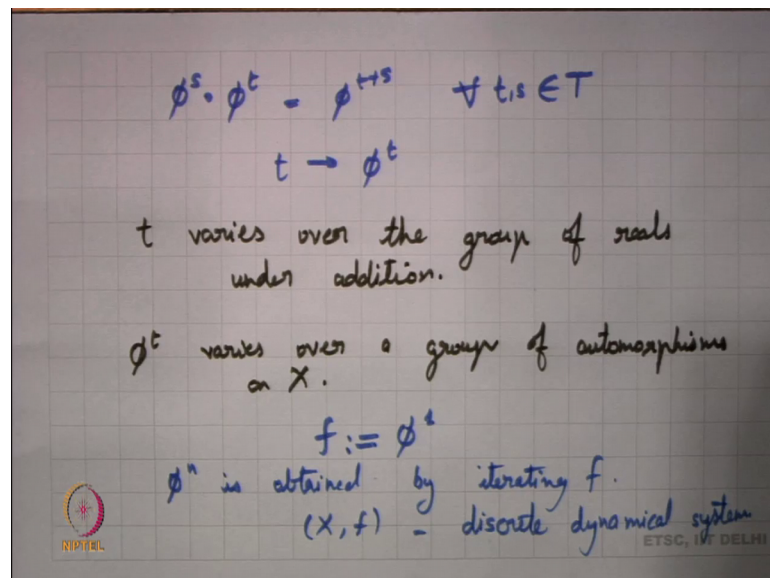 ϕˢ · ϕᵗ = ϕᵗ⁺ˢ ∀ t,s ∈ T
t → ϕᵗ
t varies over the group of reals
under addition.
ϕᵗ varies over a group of automorphisms
on X.
f := ϕ¹
ϕⁿ is obtained by iterating f.
(X, f) - discrete dynamical system
NPTEL
ETSC, IIT DELHI